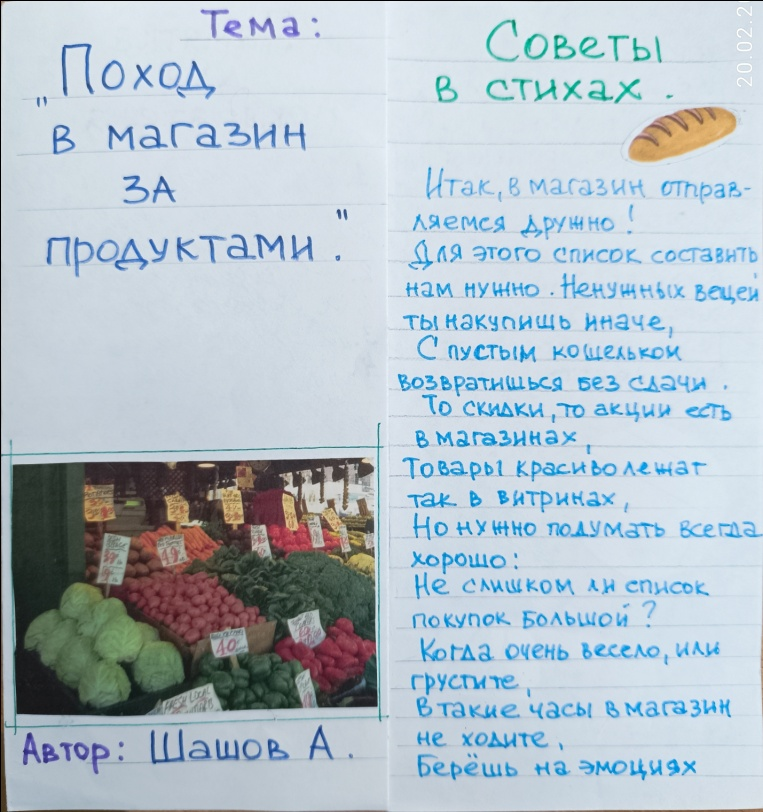 Тема:
"Поход
в магазин
за
продуктами."
40
FRESH LOCAL
Автор: Шашов А.
Советы
в стихах.
20.02.2
Итак, в магазин отправ-
ляемся дружно!
Для этого список составить
нам нужно. Ненужных вещей
ты накупишь иначе,
С пустым кошельком
возвратишься без сдачи.
То скидки, то акции есть
в магазинах,
Товары красиво лежат
так в витринах,
Но нужно подумать всегда
хорошо:
Не слишком ли список
покупок большой?
Когда очень весело, или
грустите,
В такие часы в магазин
не ходите,
Берёшь на эмоциях